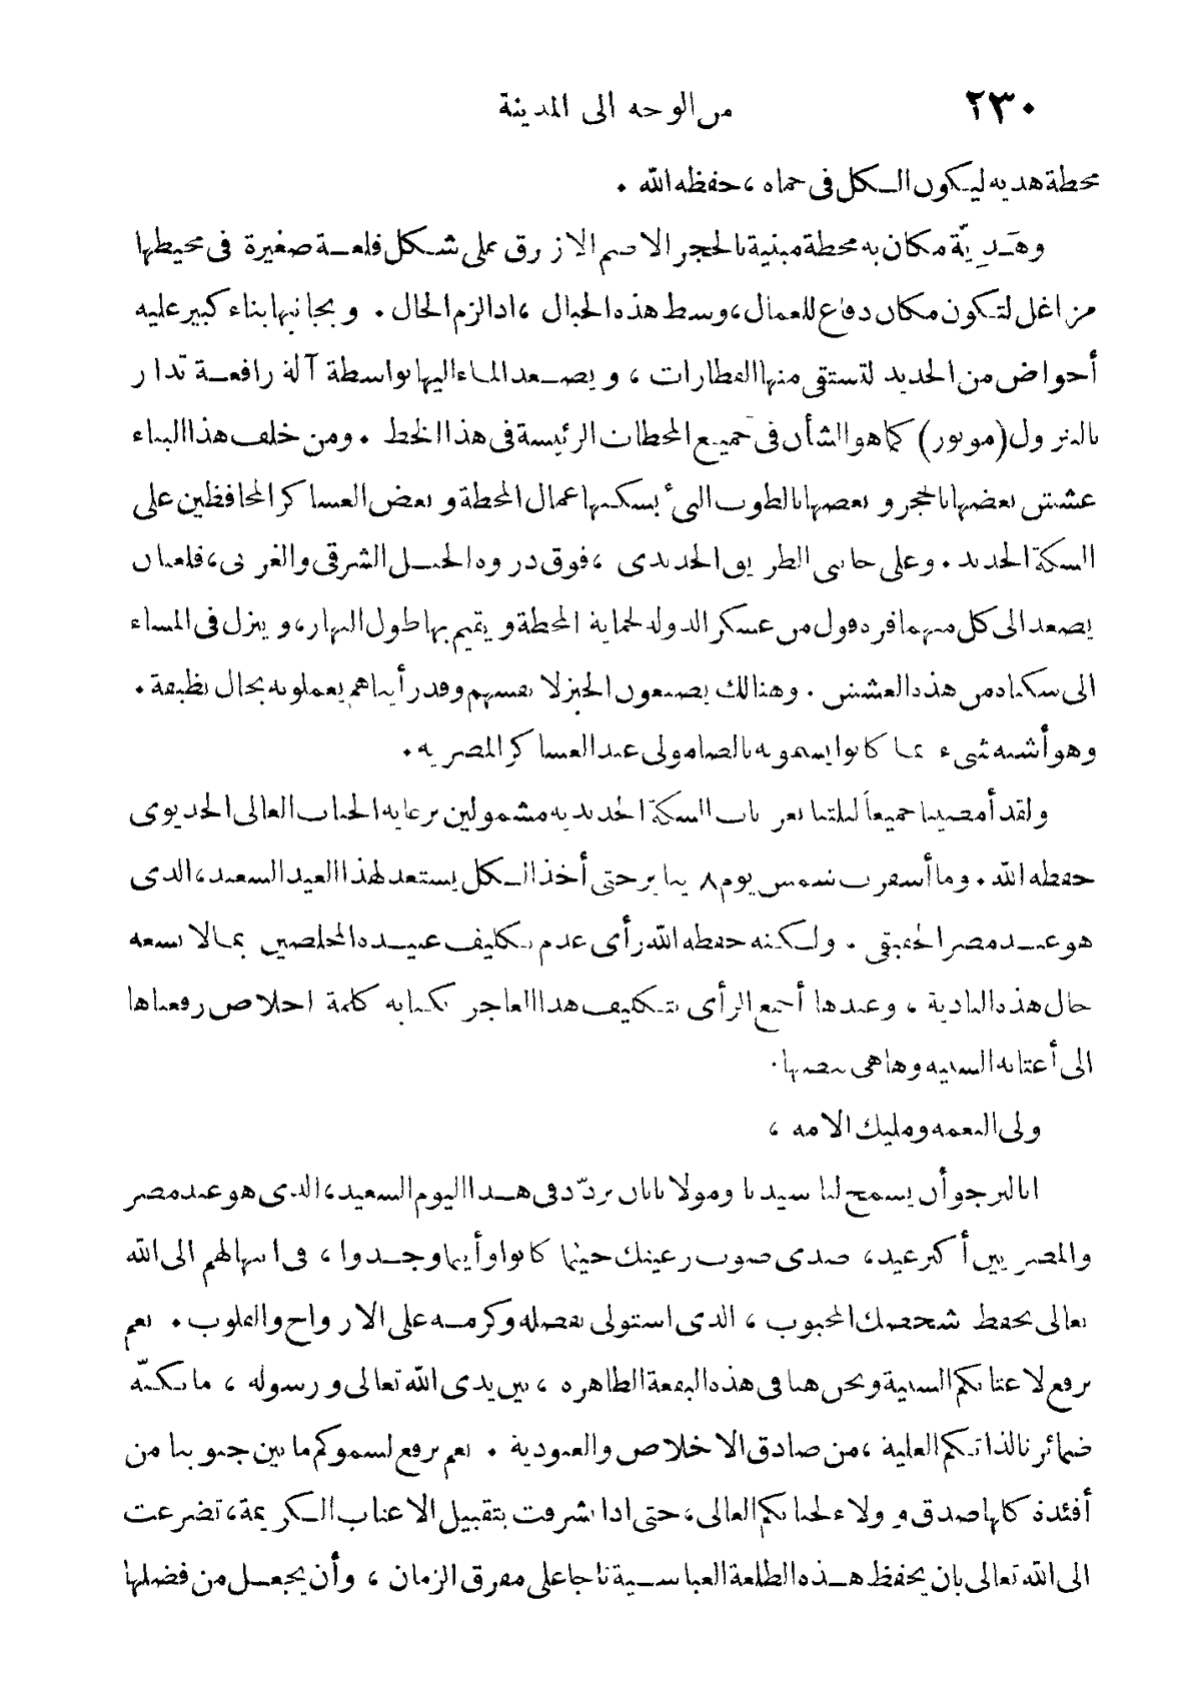 ٢٣٠ من الوجه الى المدينة
محطة هديه ليكون الكل فى حماه ، حفظه الله .
وهَدِيّة مكان به محطة مبنية بالحجر الاصم الازرق على شكل قلعة صغيرة فى محيطها
مزاغل لتكون مكان دفاع للعمال ، وسط هذه الجبال ، اذا لزم الحال . وبجانبها بناء كبير عليه
أحواض من الحديد لتستقى منها القطارات ، ويصعد الماء اليها بواسطة آلة رافعة تدار
بالبترول (موتور) كما هو الشأن فى جميع المحطات الرئيسة فى هذا الخط . ومن خلف هذا البناء
عشش بعضها بالحجر وبعضها بالطوب النىء يسكنها عمال المحطة وبعض العساكر المحافظين على
السكة الحديد . وعلى جانبى الطريق الحديدى ، فوق ذروة الجبل الشرقى والغربى ، قلعتان
يصعد الى كل منهما فرد قول من عسكر الدولة لحماية المحطة ويقيم بها طول النهار ، وينزل فى المساء
الى سكناه من هذه العشش . وهنالك يصنعون الخبز لانفسهم وقد رأيناهم يعملونه بحال نظيفة .
وهو أشبه شىء بما كانوا يسمونه بالصامولى عند العساكر المصرية .
ولقد أمضينا جميعاً ليلتنا بعربات السكة الحديدية مشمولين برعاية الجناب العالى الخديوى
حفظه الله . وما أسفرت شمس يوم ٨ يناير حتى أخذ الكل يستعد لهذا العيد السعيد ، الذى
هو عيد مصر الحقيقى . ولكنه حفظه الله رأى عدم تكليف عبيده المخلصين بما لا تسعه
حال هذه البادية ، وعندها أجمع الرأى بتكليف هذا العاجز بكتابة كلمة اخلاص رفعناها
الى أعتابه السنيه وها هى بنصها .
ولى النعمه ومليك الامه ،
انا لنرجو أن يسمح لنا سيدنا ومولانا بان نردّد فى هذا اليوم السعيد ، الذى هو عند مصر
والمصريين أكبر عيد ، صدى صوت رعيتك حيثما كانوا وأينما وجدوا ، فى ابتهالهم الى الله
تعالى بحفظ شخصك المحبوب ، الذى استولى بفضله وكرمه على الارواح والقلوب . نعم
نرفع لاعتابكم السنية ونحن هنا فى هذه البقعة الطاهره ، بين يدى الله تعالى ورسوله ، ما تكنّه
ضمائرنا لذاتكم العلية ، من صادق الاخلاص والعبودية . نعم نرفع لسموكم ما بين جنوبنا من
أفئدة كلها صدق وولاء لجنابكم العالى ، حتى اذا تشرفت بتقبيل الاعتاب الكريمة ، تضرعت
الى الله تعالى بان يحفظ هذه الطلعة العباسية تاجا على مفرق الزمان ، وأن يجعل من فضلها